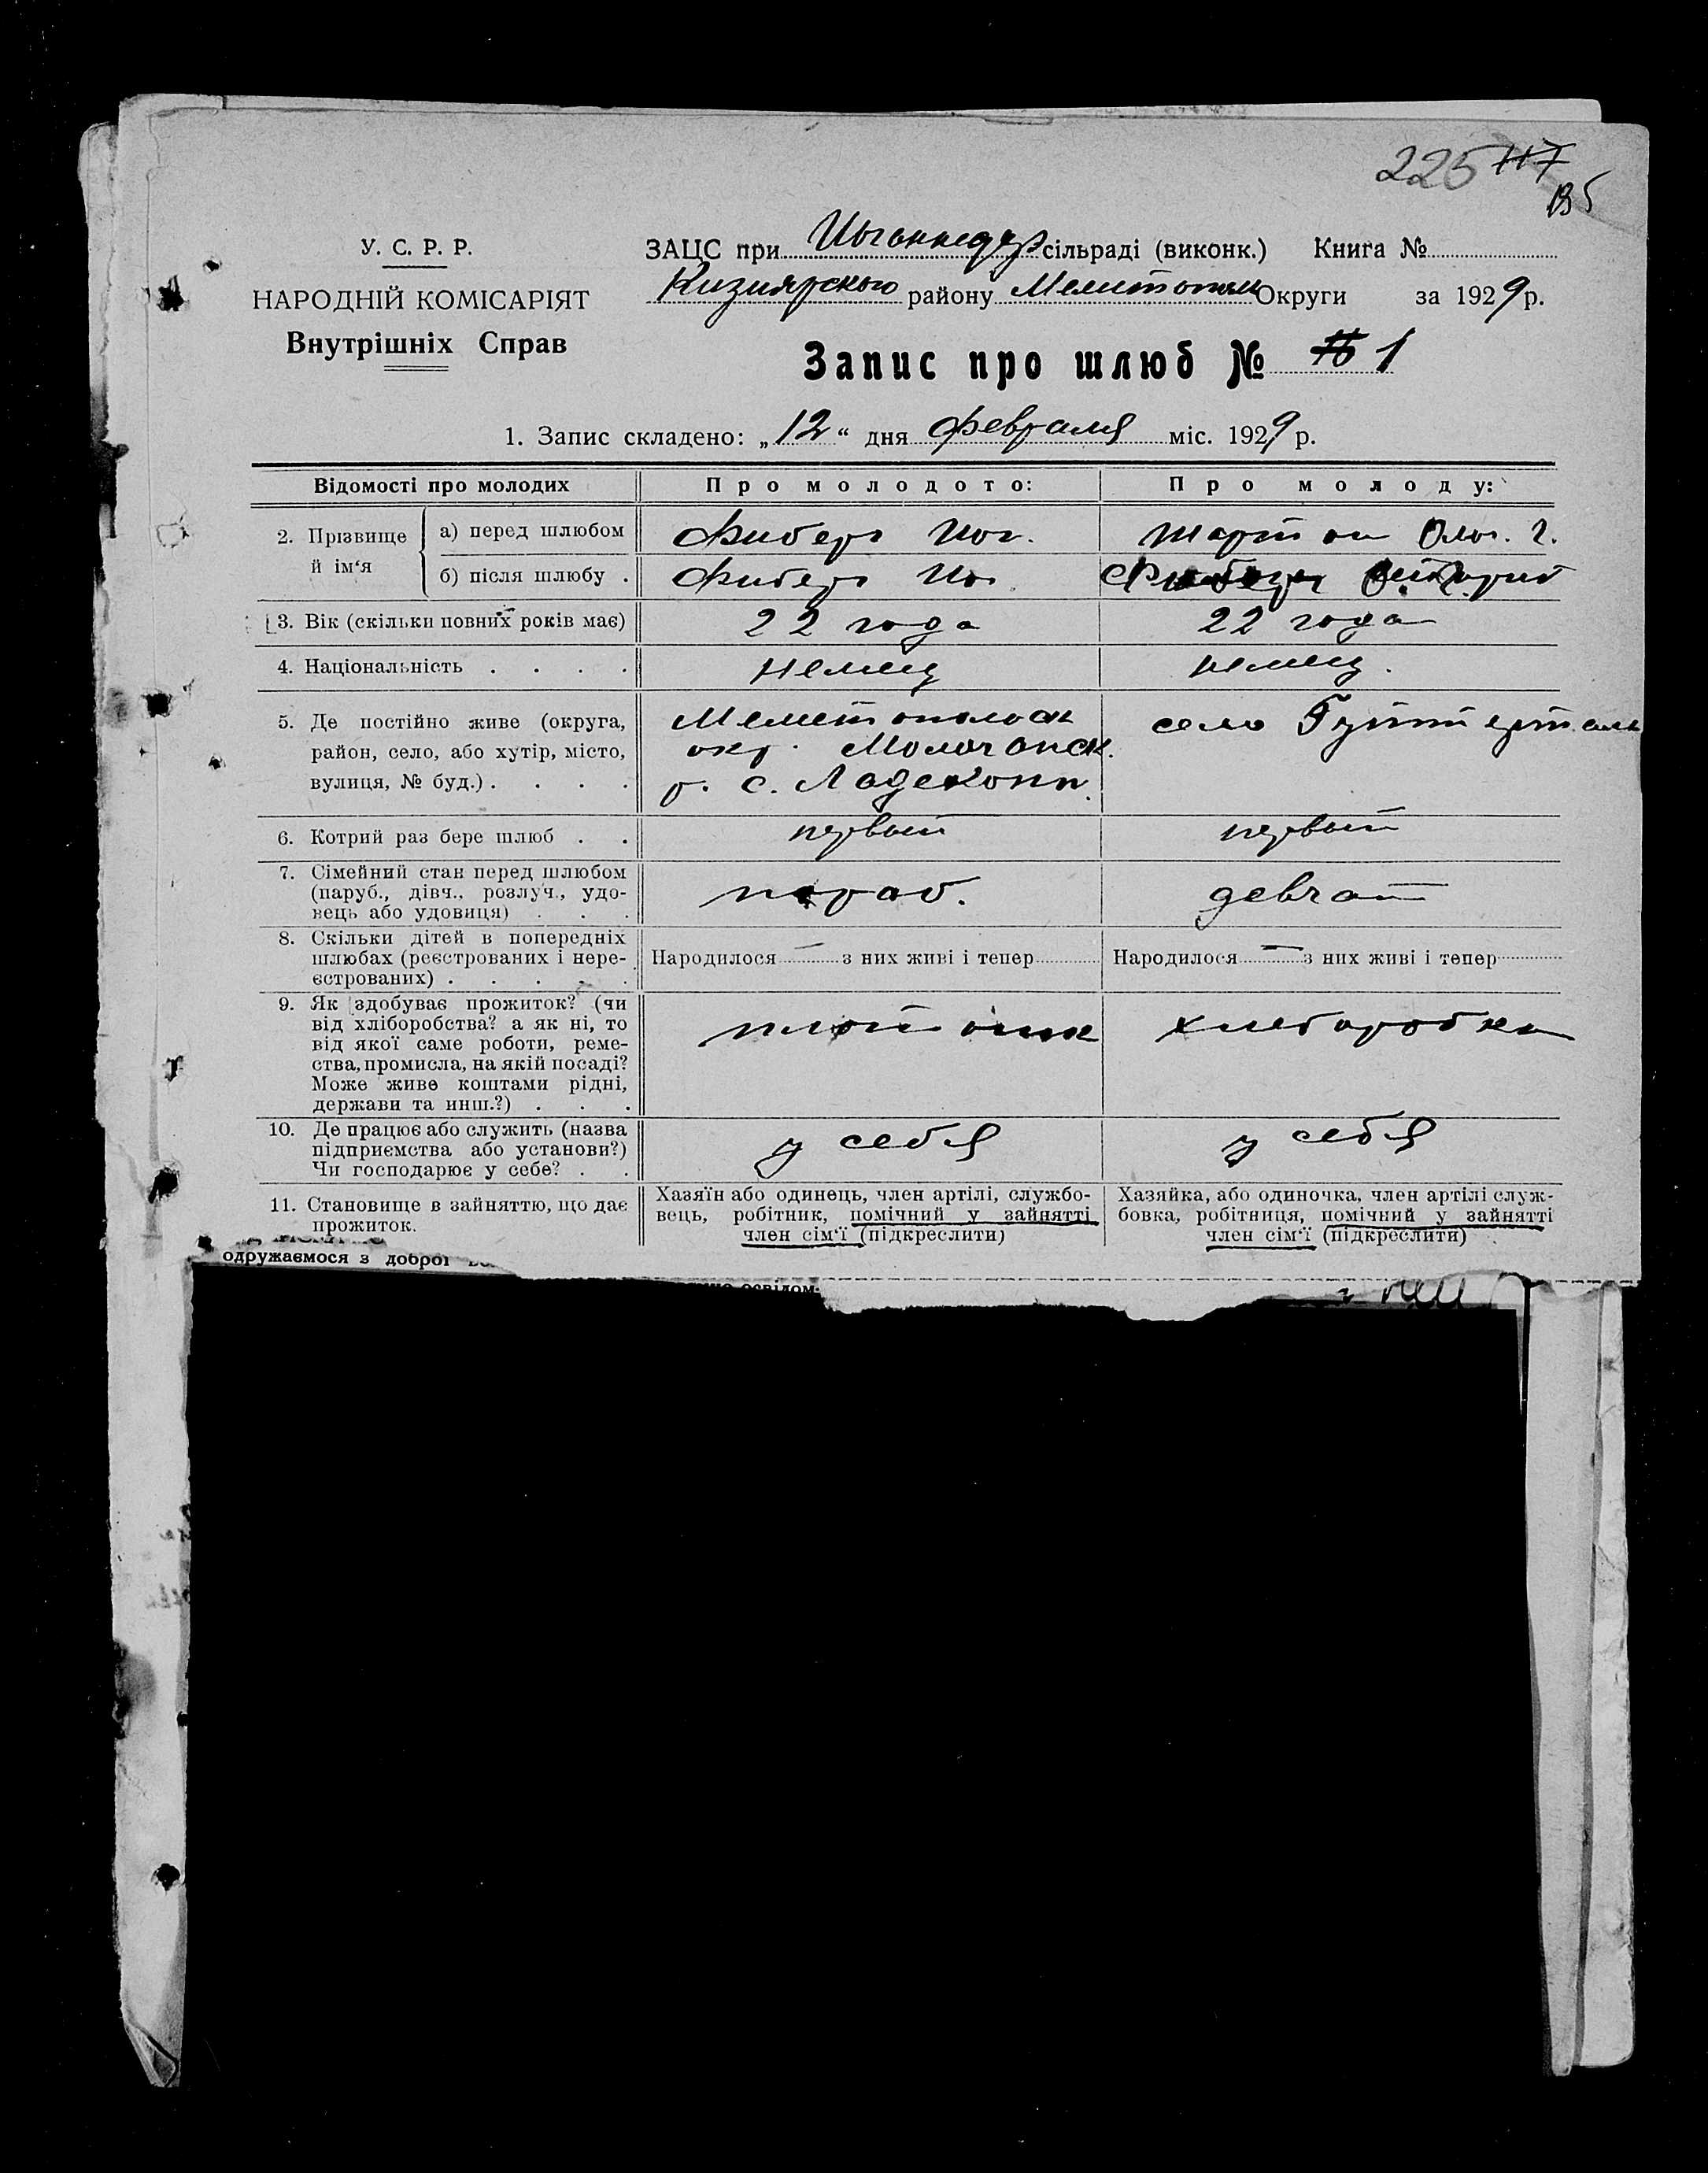 225 117
У. С. Р. Р.
НАРОДНІЙ КОМІСАРІЯТ
Внутрішніх Справ
ЗАЦС при сільраді (виконк.) Книга №
Кизиярского району Мелитополь Округи за 1929 р.
Запис про шлюб № 1
1. Запис складено: „12“ дня февраля міс. 1929 р.
Відомості про молодих Про молодого: Про молоду:
2. Прізвище й ім‘я
а) перед шлюбом Фибер Иог. Мартин
б) після шлюбу . Фибер Иог
3. Вік (скільки повних років має) 22 года 22 года
4. Національність . . . . немец немец.
5. Де постійно живе (округа,
район, село, або хутір, місто,
вулиця, № буд.) . . . .
Мелитопольск
окр. Молочанск.
р. с. Ладекопп.
село
6. Котрий раз бере шлюб . . первый первый
7. Сімейний стан перед шлюбом
(паруб., дівч., розлуч., удо-
вець або удовиця) . . .
параб. девчат
8. Скільки дітей в попередніх
шлюбах (реєстрованих і нере-
єстрованих) . . . . .
Народилося — з них живі і тепер Народилося — з них живі і тепер
9. Як здобуває прожиток? (чи
від хліборобства? а як ні, то
від якої саме роботи, реме-
ства, промисла, на якій посаді?
Може живе коштами рідні,
держави та инш.?) . . .
плотник хлеборобка
10. Де працює або служить (назва
підприємства або установи?)
Чи господарює у себе? . .
у себя у себя
11. Становище в зайняттю, що дає
прожиток.
Хазяїн або одинець, член артілі, службо-
вець, робітник, помічний у зайнятті
член сім‘ї (підкреслити)
Хазяйка, або одиночка, член артілі служ-
бовка, робітниця, помічний у зайнятті
член сім‘ї (підкреслити)
одружаємося з доброї